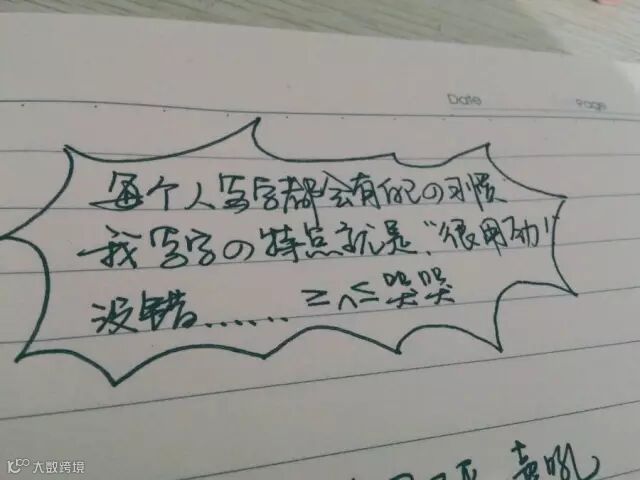 Date Page
每个人写字都会有自己の习惯
我写字の特点就是“很用力”
没错...... ≥﹏≤ 哭哭
大数跨境